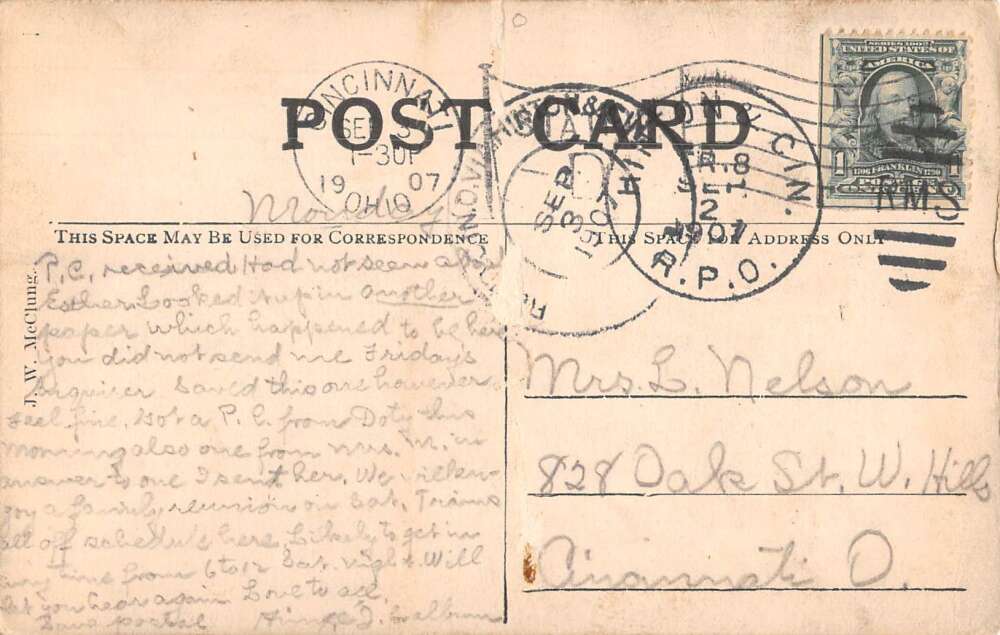 POST CARD
CINCINNATI
SEP 3
1-30P
19 07
OHIO
SEP. 3 1907
SEP 2 1907
R.P.O.
SERIES 1902
UNITED STATES OF
AMERICA
1 1
FRANKLIN
RMS
Monday
THIS SPACE MAY BE USED FOR CORRESPONDENCE
THIS SPACE FOR ADDRESS ONLY
J. W. McClung.
P.C. received Had not seen about
Esther Looked it up in another
paper which happened to be here
you did not send me Fridays
Enquirer Saved this one however
Feel fine. Got a P.C. from Doty this
morning also one from Mrs. M. in
answer to one I sent her. We will en-
joy a family reunion on Sat. Trains
all off schedule here. Likely to get in
any time from 6 to 12 Sat. night. Will
let you hear again Love to all.
postal
Mrs. L. Nelson
828 Oak St. W. Hills
Cincinnati O.